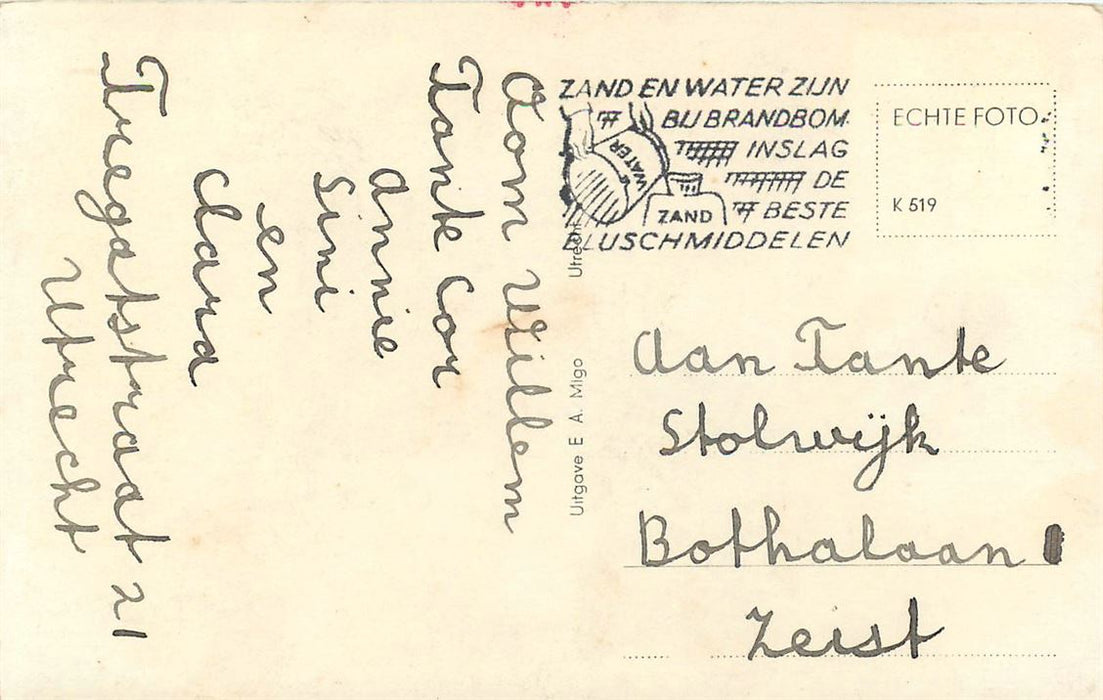 Oom Willem
Tante Cor
Annie
Sini
en
Clara
21
Utrecht
Uitgave E. A. Migo Utrecht
ZAND EN WATER ZIJN
BIJ BRANDBOM
INSLAG
DE
BESTE
BLUSCHMIDDELEN
WATER
ZAND
ECHTE FOTO
K 519
Aan Tante
Stolwijk
Bothalaan
Zeist